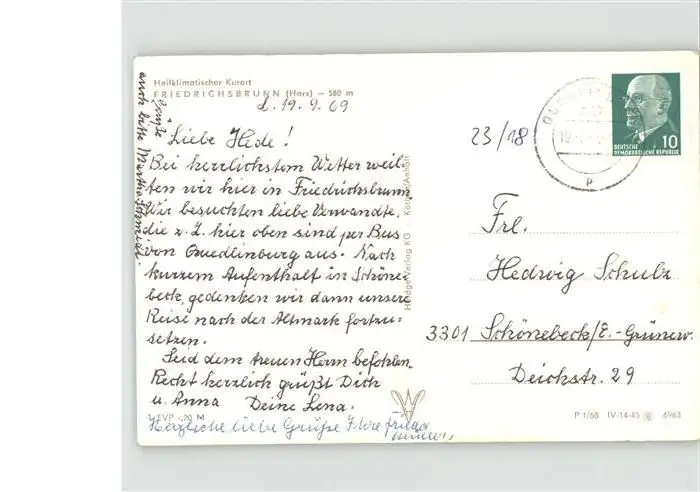 Heilklimatischer Kurort
FRIEDRICHSBRUNN (Harz) – 580 m
d. 19. 9. 69
Liebe Hede!
Bei herrlichstem Wetter weil-
ten wir hier in Friedrichsbrunn
Wir besuchten liebe Verwandte,
die z. Z. hier oben sind per Bus
von Quedlinburg aus. Nach
kurzem Aufenthalt in Schöne-
beck, gedenken wir dann unsere
Reise nach der Altmark fortzu-
setzen.
Seid dem treuen Herrn befohlen.
Recht herzlich grüßt Dich
u. Anna Deine Lena.
EVP -,20 M
Herzliche liebe Grüße Ihre
Grüße
auch bitte Martha
Heldge-Verlag KG Köthen/Anhalt
23/18
DEUTSCHE
DEMOKRATISCHE REPUBLIK
10
Frl.
Hedwig Schulz
3301 Schönebeck/E.-Grünew.
Deichstr. 29
P 1/68 IV-14-45 6963